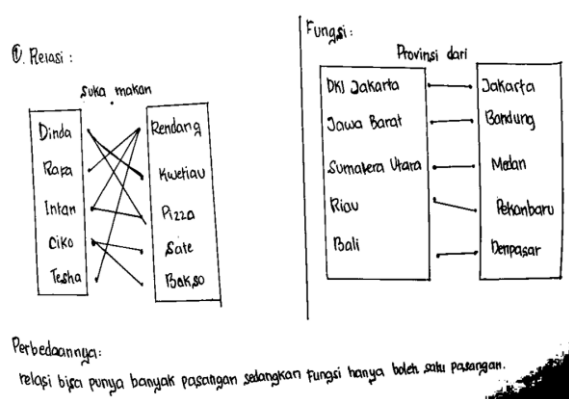 ① Relasi :
Suka makan
Dinda
Raka
Intan
Ciko
Tesha
Rendang
Kwetiau
Pizza
Sate
Bakso
Fungsi :
Provinsi dari
DKI Jakarta
Jawa Barat
Sumatera Utara
Riau
Bali
Jakarta
Bandung
Medan
Pekanbaru
Denpasar
Perbedaannya:
relasi bisa punya banyak pasangan sedangkan fungsi hanya boleh satu pasangan.